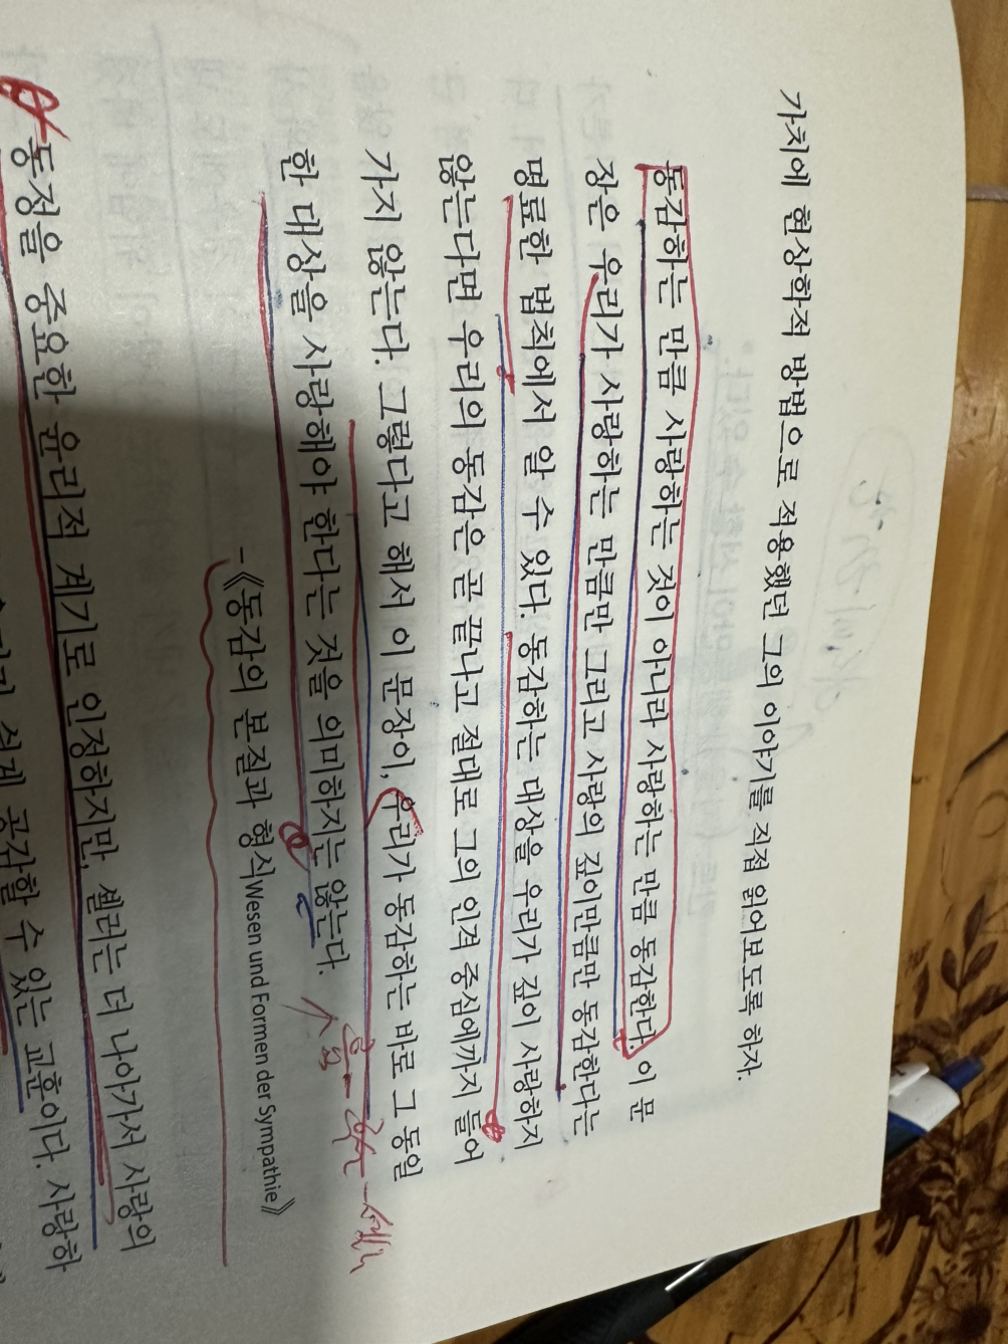 가치에 현상학적 방법으로 적용했던 그의 이야기를 직접 읽어보도록 하자.
동감하는 만큼 사랑하는 것이 아니라 사랑하는 만큼 동감한다. 이 문
장은 우리가 사랑하는 만큼만 그리고 사랑의 깊이만큼만 동감한다는
명료한 법칙에서 알 수 있다. 동감하는 대상을 우리가 깊이 사랑하지
않는다면 우리의 동감은 곧 끝나고 절대로 그의 인격 중심에까지 들어
가지 않는다. 그렇다고 해서 이 문장이, 우리가 동감하는 바로 그 동일
한 대상을 사랑해야 한다는 것을 의미하지는 않는다.
-《동감의 본질과 형식Wesen und Formen der Sympathie》
동정을 중요한 윤리적 계기로 인정하지만, 셸러는 더 나아가서 사랑의
쉽게 공감할 수 있는 교훈이다. 사랑하